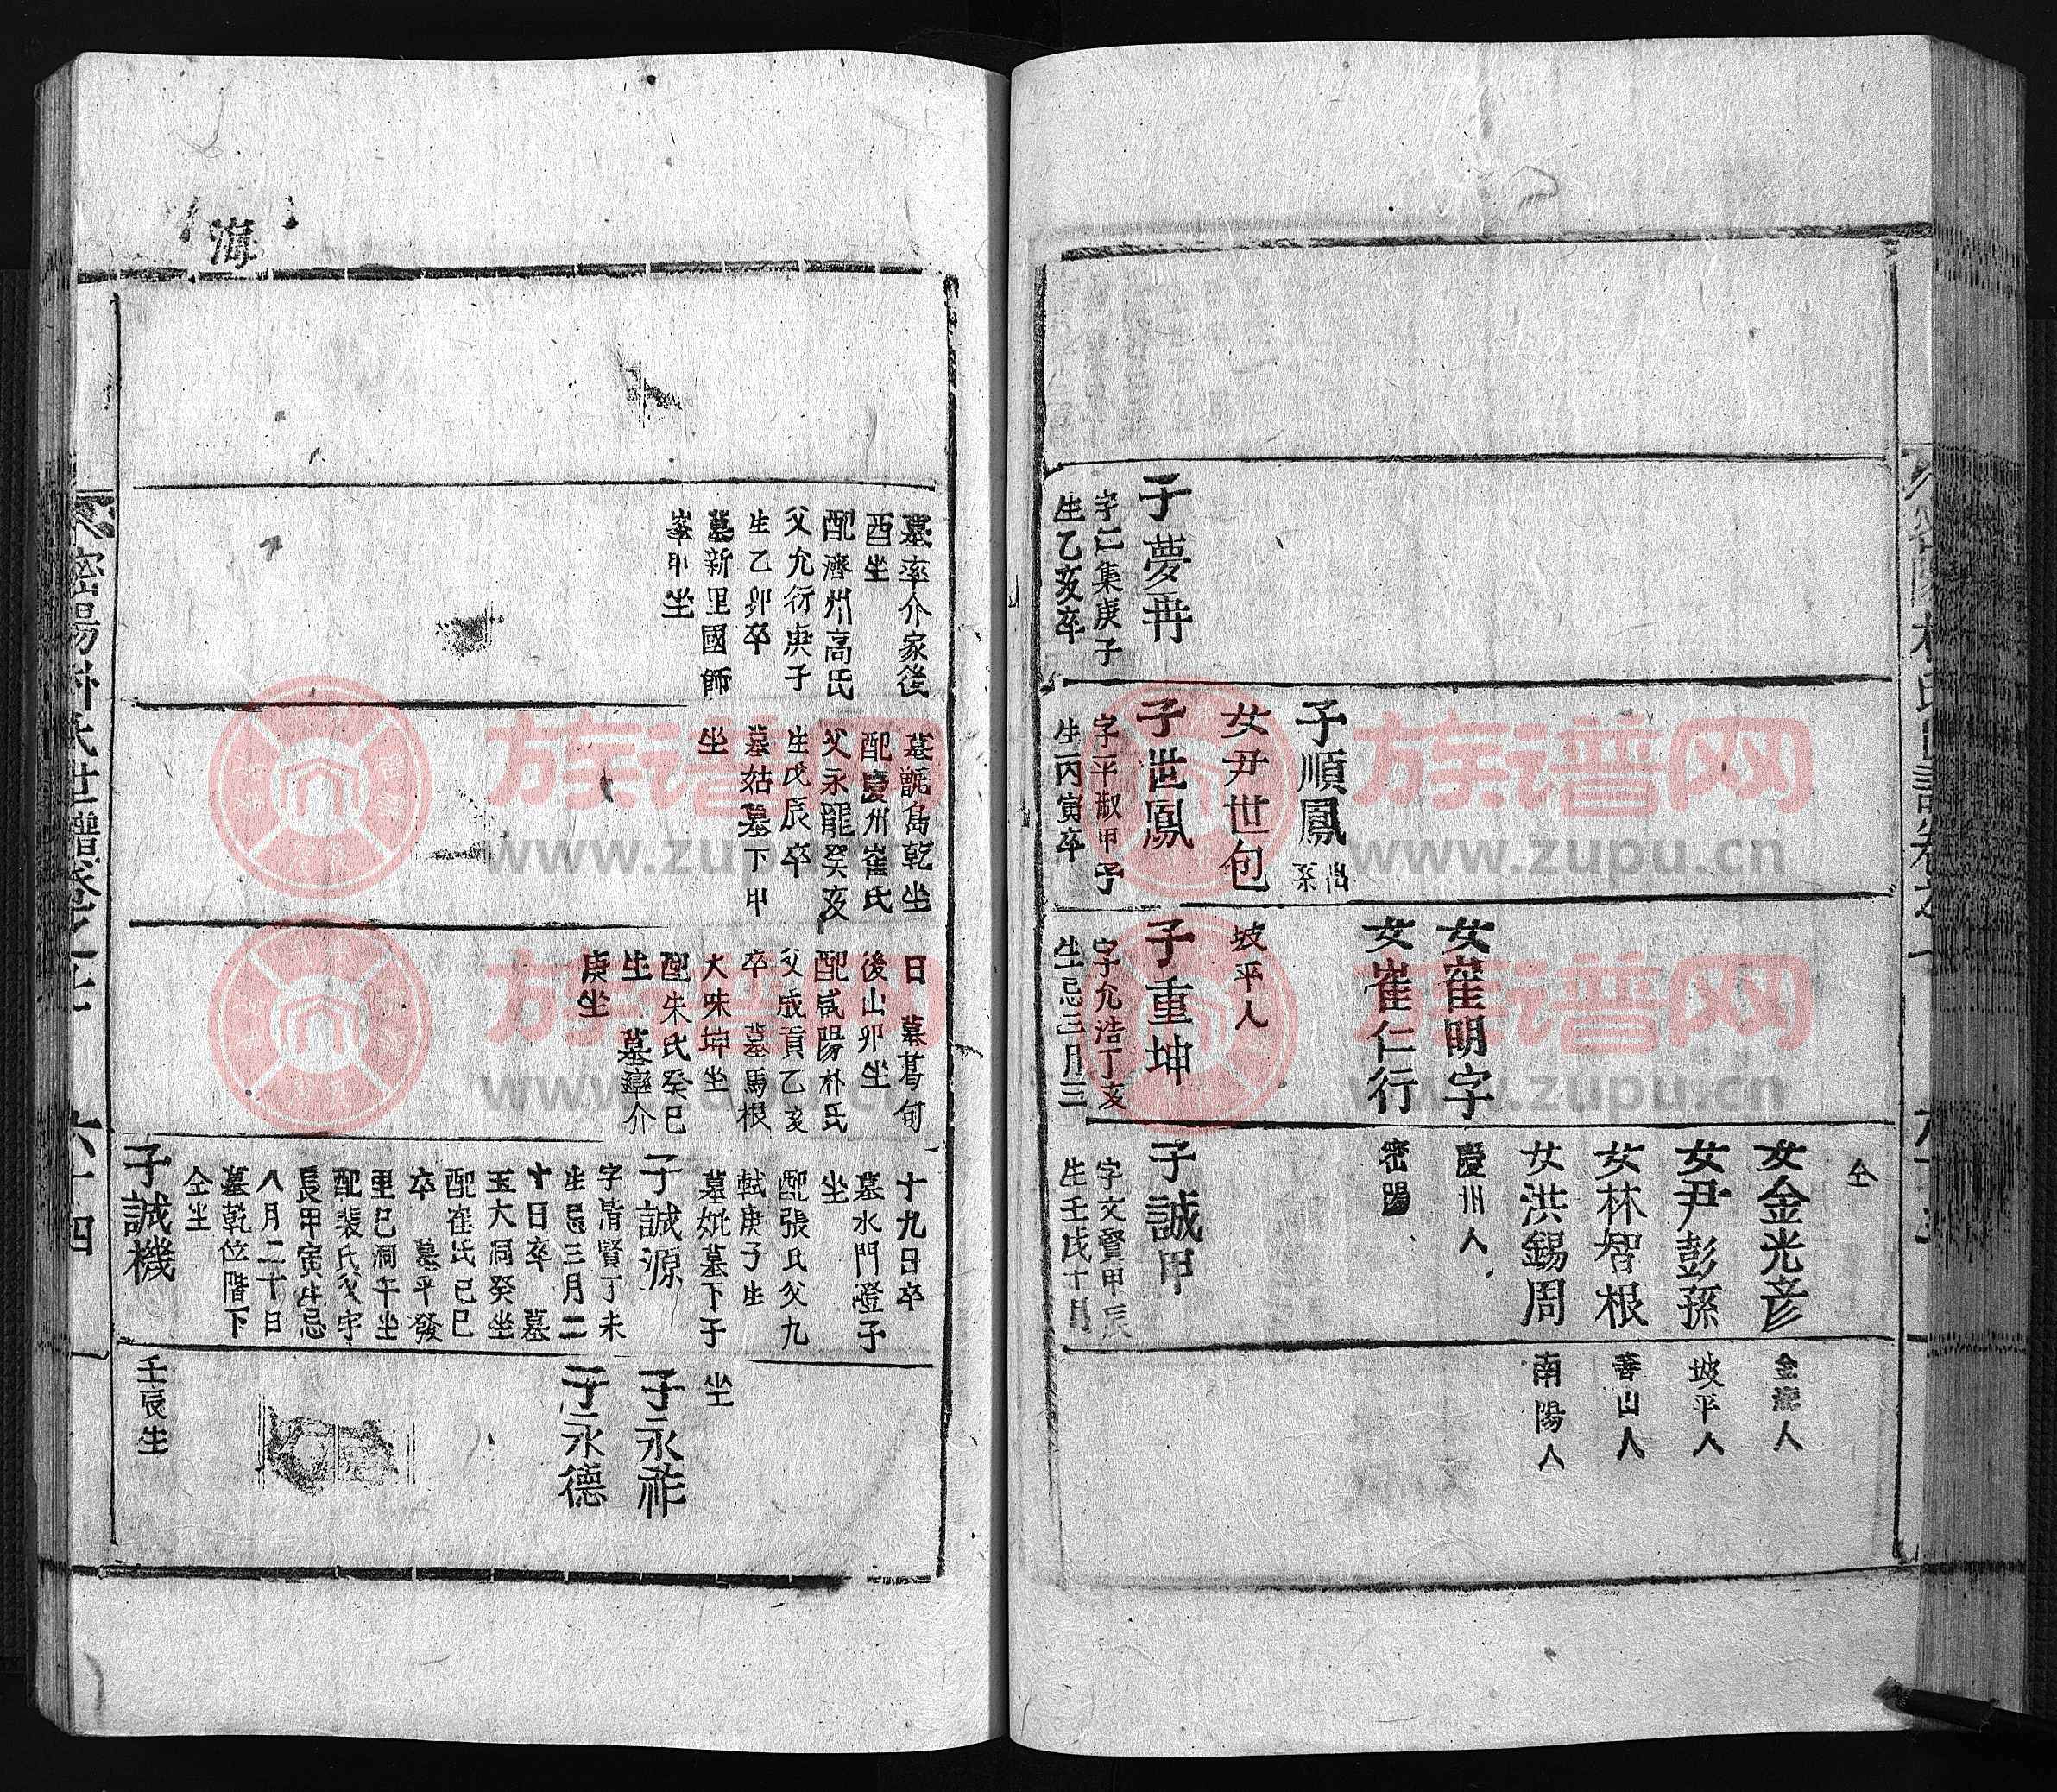 密陽朴氏世譜卷之七
子夢冉
字仁集庚子
生乙亥卒
子順鳳
出系
女尹世包
子世鳳
字平淑甲子
生丙寅卒
女崔明字
女崔仁行
坡平人
子重坤
字允浩丁亥
生忌三月三
仝
女金光彦
女尹彭孫
女林智根
女洪錫周
慶州人
密陽
子誠甲
字文賢甲辰
生壬戌十月
金海人
坡平人
善山人
南陽人
海
墓率介家後
酉坐
配濟州高氏
父允衍庚子
生乙卯卒
墓新里國師
峯甲坐
島乾坐
配慶州崔氏
父永龍癸亥
生戊辰卒
墓姑墓下甲
坐
日 墓葛旬
後山卯坐
配咸陽朴氏
父成貢乙亥
卒 墓馬根
大味坤坐
配朱氏癸巳
生 墓率介
庚坐
十九日卒
墓水門嶝子
坐
配張氏父九
軾庚子生
墓妣墓下子
子誠源
字清賢丁未
生忌三月二
十日卒 墓
玉大洞癸坐
配崔氏己巳
卒 墓平發
里巳洞午坐
配裴氏父宇
長甲寅生忌
八月二十日
墓乾位階下
仝坐
子誠機
坐
子永祚
子永德
壬辰生
密陽朴氏世譜卷之七
六十四
www.zupu.cn
族谱网
www.zupu.cn
族谱网
www.zupu.cn
族谱网
www.zupu.cn
族谱网